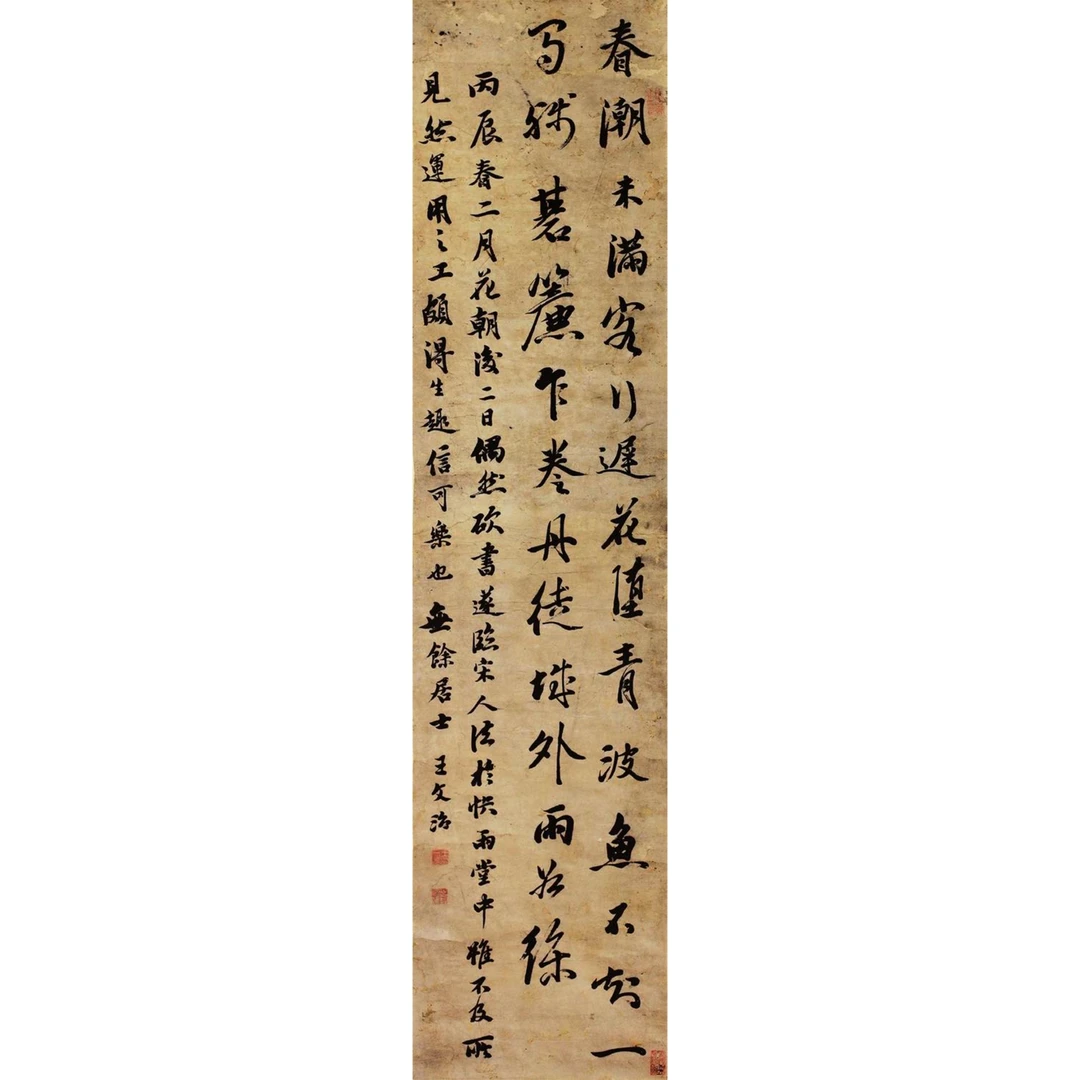 春潮未滿客行遲花墮青波魚不知一
局殘碁簾乍卷丹徒城外雨如絲
丙辰春二月花朝後二日偶然欲書遂臨宋人法於快雨堂中雖不及所
見然運用之工頗得生趣信可樂也無餘居士王文治